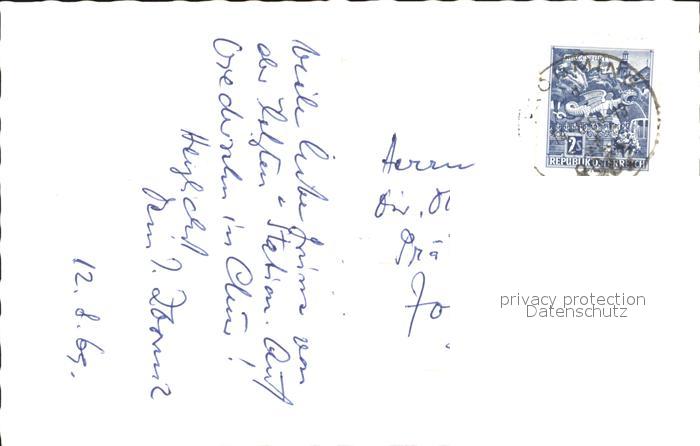 Viele liebe Grüsse von
der letzten Station. Auf
Wiedersehn in Chur!
Herzlichst
Dein J.
12. 8. 69.
Herrn
Dir. Dr
Grä
70
2S
REPUBLIK ÖSTERREICH
privacy protection
Datenschutz